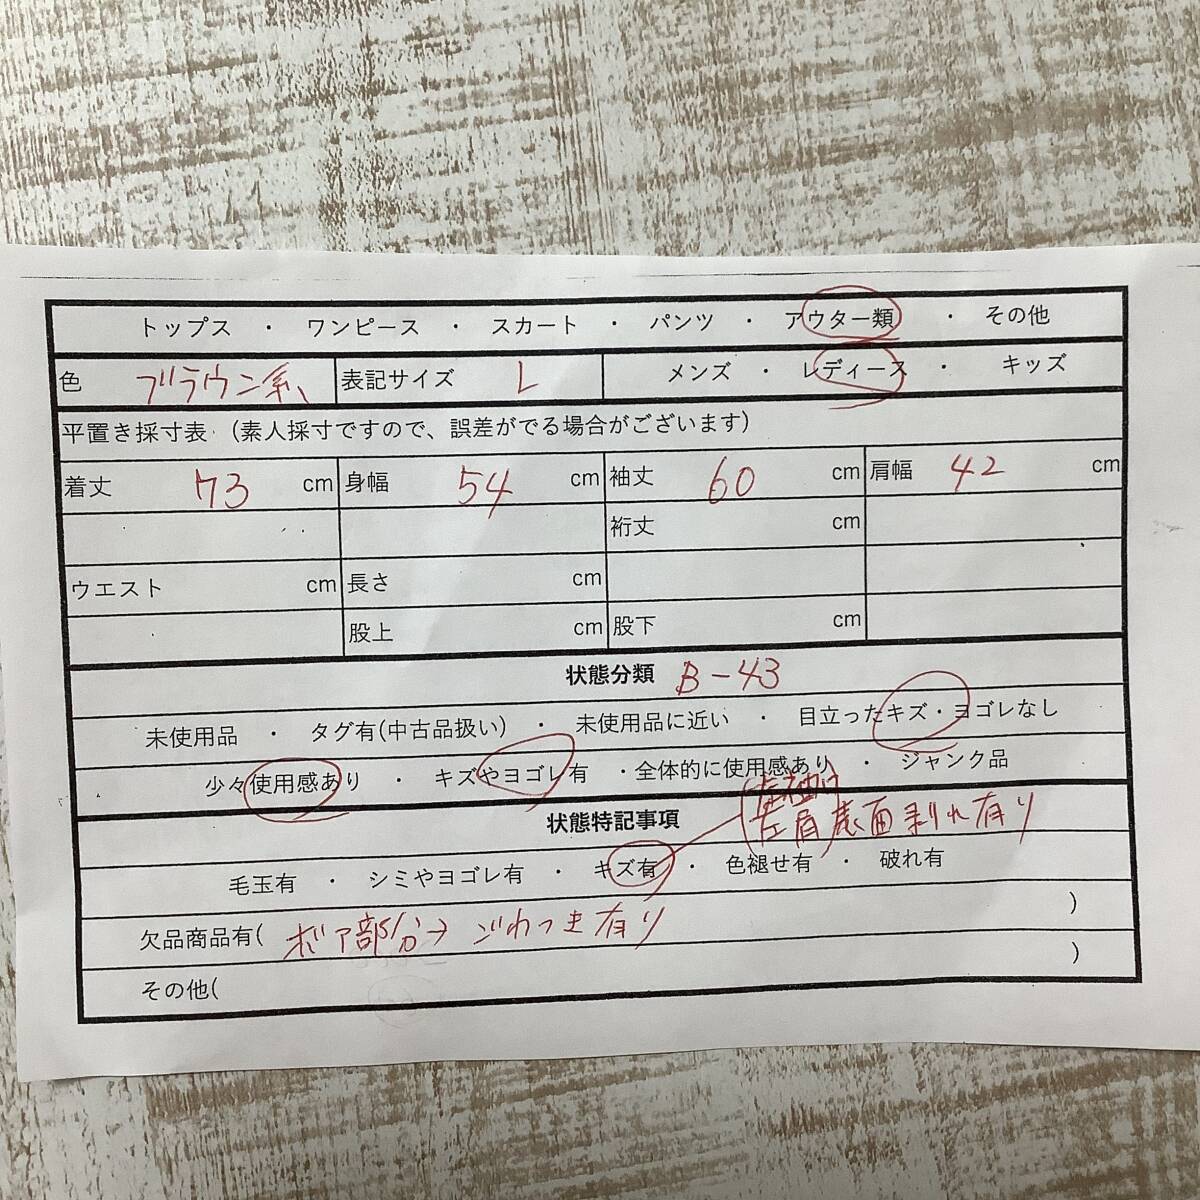 トップス ・ ワンピース ・ スカート ・ パンツ ・ アウター類 ・ その他
色 ブラウン系 表記サイズ L メンズ ・ レディース ・ キッズ
平置き採寸表 （素人採寸ですので、誤差がでる場合がございます）
着丈 73 cm 身幅 54 cm 袖丈 60 cm 肩幅 42 cm
裄丈 cm
ウエスト cm 長さ cm
股上 cm 股下 cm
状態分類 B-43
未使用品 ・ タグ有(中古品扱い) ・ 未使用品に近い ・ 目立ったキズ・ヨゴレなし
少々使用感あり ・ キズやヨゴレ有 ・全体的に使用感あり ・ ジャンク品
状態特記事項 左肩 表面剥れ有り
毛玉有 ・ シミやヨゴレ有 ・ キズ有 ・ 色褪せ有 ・ 破れ有
欠品商品有( ボア部分→ ごわつき有り )
その他( )